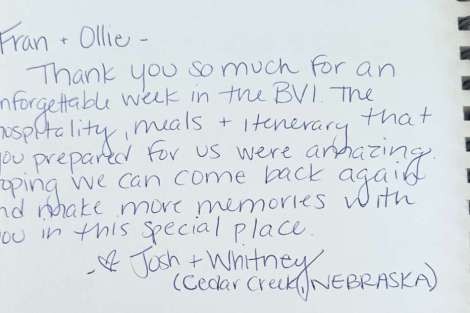 Fran + Ollie -
Thank you so much for an
nforgettable week in the BVI. The
hospitality, meals + itenerary that
you prepared for us were amazing.
oping we can come back again
nd make more memories with
ou in this special place.
-♡ Josh + Whitney
(Cedar Creek, NEBRASKA)